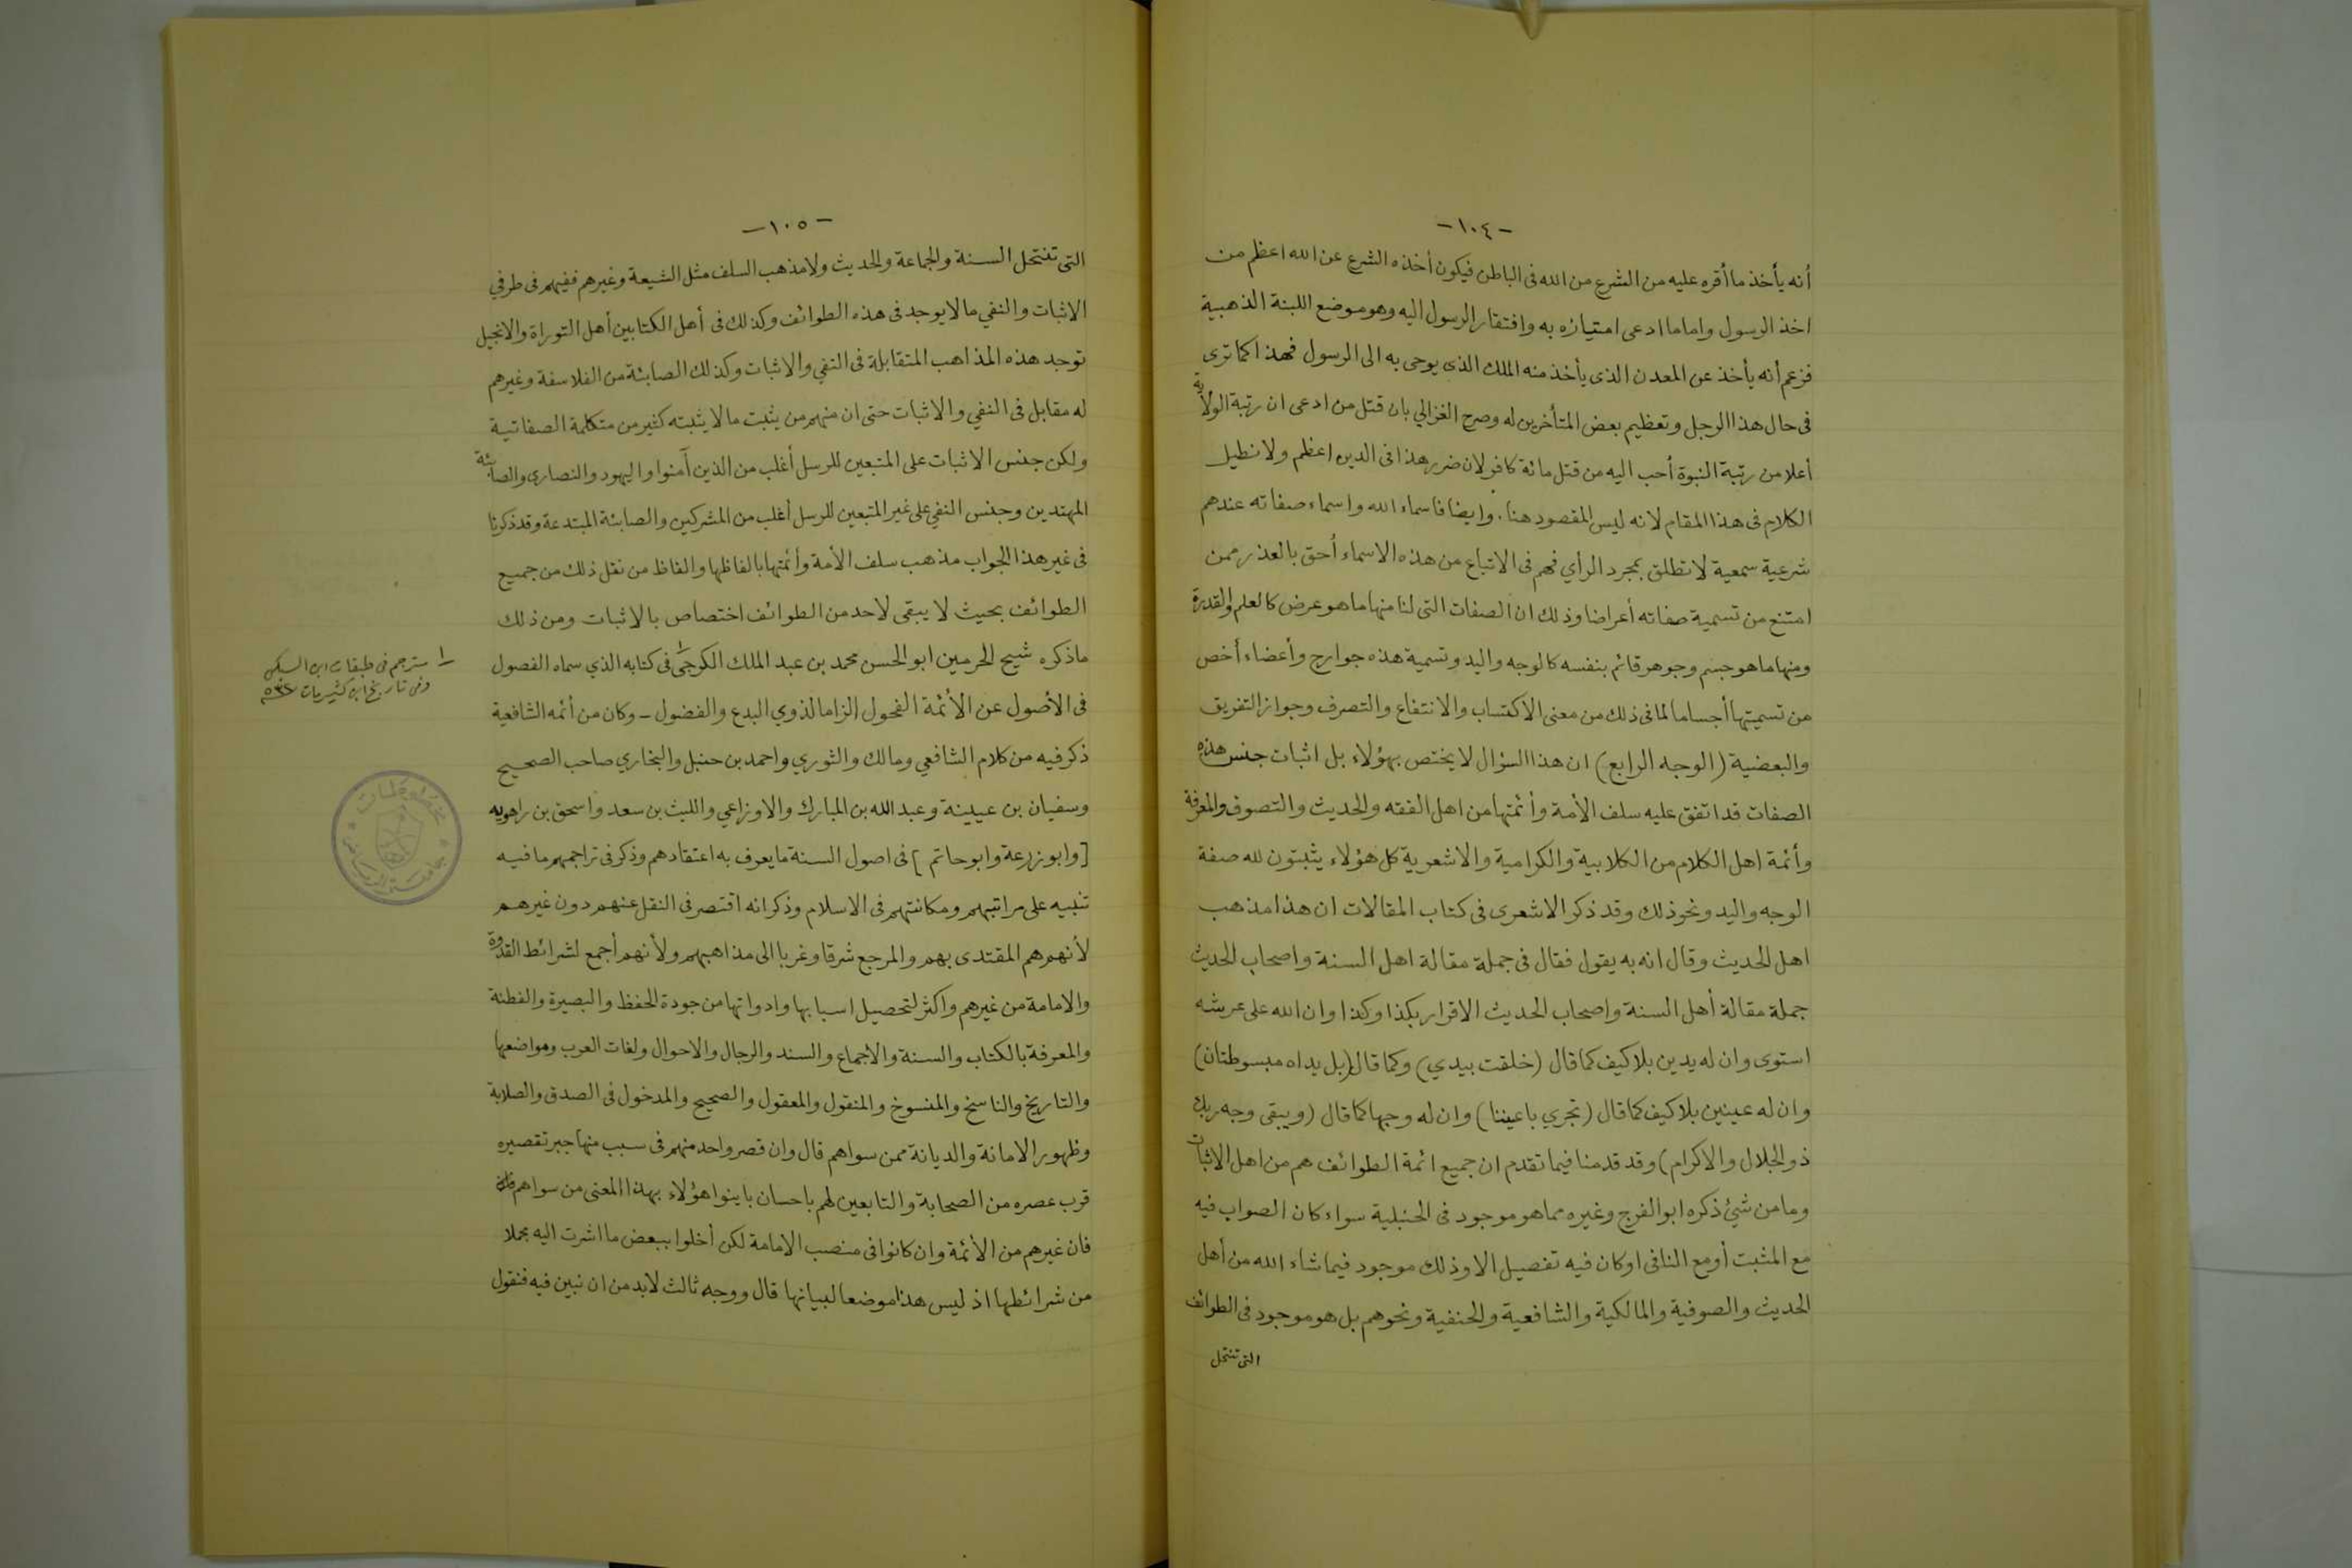 -١٠٤-
أنه يأخذ ما أقره عليه من الشرع من الله فى الباطن فيكون أخذه الشرع عن الله اعظم من
اخذ الرسول واما ما ادعى امتيازه به وافتقار الرسول اليه وهو موضع اللبنة الذهبية
فزعم أنه يأخذ عن المعدن الذى يأخذ منه الملك الذى يوحى به الى الرسول فهذا كما ترى
فى حال هذا الرجل وتعظيم بعض المتأخرين له وصرح الغزالي بان قتل من ادعى ان رتبة الولاية
أعلا من رتبة النبوة أحب اليه من قتل مائة كافر لان ضرر هذا فى الدين اعظم ولا نطيل
الكلام فى هذا المقام لانه ليس المقصود هنا. وايضا فاسماء الله واسماء صفاته عندهم
شرعية سمعية لا تطلق بمجرد الرأي فهم فى الاتباع من هذه الاسماء أحق بالعذر ممن
امتنع من تسمية صفاته أعراضا وذلك ان الصفات التى لنا منها ما هو عرض كالعلم والقدرة
ومنها ما هو جسم وجوهر قائم بنفسه كالوجه واليد وتسمية هذه جوارح وأعضاء أخص
من تسميتها أجساما لما فى ذلك من معنى الاكتساب والانتفاع والتصرف وجواز التفريق
والبعضية (الوجه الرابع) ان هذا السؤال لا يختص بهؤلاء بل اثبات جنس هذه
الصفات قد اتفق عليه سلف الأمة وأئمتها من اهل الفقه والحديث والتصوف والمعرفة
وأئمة اهل الكلام من الكلابية والكرامية والاشعرية كل هؤلاء يثبتون لله صفة
الوجه واليد ونحو ذلك وقد ذكر الاشعرى فى كتاب المقالات ان هذا مذهب
اهل الحديث وقال انه به يقول فقال فى جملة مقالة اهل السنة واصحاب الحديث
جملة مقالة أهل السنة واصحاب الحديث الاقرار بكذا وكذا وان الله على عرشه
استوى وان له يدين بلا كيف كما قال (خلقت بيدي) وكما قال (بل يداه مبسوطتان)
وان له عينين بلا كيف كما قال (تجري باعيننا) وان له وجها كما قال (ويبقى وجه ربك
ذو الجلال والاكرام) وقد قدمنا فيما تقدم ان جميع ائمة الطوائف هم من اهل الاثبات
وما من شئ ذكره ابو الفرج وغيره مما هو موجود فى الحنبلية سواء كان الصواب فيه
مع المثبت أو مع النافى او كان فيه تفصيل الا وذلك موجود فيما شاء الله من أهل
الحديث والصوفية والمالكية والشافعية والحنفية ونحوهم بل هو موجود فى الطوائف
التى تنتحل
-١٠٥-
التى تنتحل السنة والجماعة والحديث ولا مذهب السلف مثل الشيعة وغيرهم ففيهم فى طرفي
الاثبات والنفي ما لا يوجد فى هذه الطوائف وكذلك فى أهل الكتابين أهل التوراة والانجيل
توجد هذه المذاهب المتقابلة فى النفي والاثبات وكذلك الصابئة من الفلاسفة وغيرهم
له مقابل فى النفي والاثبات حتى ان منهم من يثبت ما لا يثبته كثير من متكلمة الصفاتية
ولكن جنس الاثبات على المتبعين للرسل أغلب من الذين آمنوا واليهود والنصارى والصابئة
المهتدين وجنس النفي على غير المتبعين للرسل أغلب من المشركين والصابئة المبتدعة وقد ذكرنا
فى غير هذا الجواب مذهب سلف الأمة وأئمتها بالفاظها والفاظ من نقل ذلك من جميع
الطوائف بحيث لا يبقى لاحد من الطوائف اختصاص بالاثبات ومن ذلك
ما ذكره شيخ الحرمين ابو الحسن محمد بن عبد الملك الكرجى ١ فى كتابه الذي سماه الفصول
فى الأصول عن الأئمة الفحول الزاما لذوي البدع والفضول - وكان من أئمه الشافعية
ذكر فيه من كلام الشافعي ومالك والثوري واحمد بن حنبل والبخاري صاحب الصحيح
وسفيان بن عيينة وعبد الله بن المبارك والاوزاعي والليث بن سعد واسحق بن راهويه
[وابو زرعة وابو حاتم] فى اصول السنة ما يعرف به اعتقادهم وذكر فى تراجمهم ما فيه
تنبيه على مراتبهم ومكانتهم فى الاسلام وذكر انه اقتصر فى النقل عنهم دون غيرهم
لأنهم هم المقتدى بهم والمرجع شرقا وغربا الى مذاهبهم ولأنهم أجمع لشرائط القدوة
والامامة من غيرهم واكثر لتحصيل اسبابها وادواتها من جودة الحفظ والبصيرة والفطنة
والمعرفة بالكتاب والسنة والاجماع والسند والرجال والاحوال ولغات العرب ومواضعها
والتاريخ والناسخ والمنسوخ والمنقول والمعقول والصحيح والمدخول فى الصدق والصلابة
وظهور الامانة والديانة ممن سواهم قال وان قصر واحد منهم فى سبب منها جبر تقصيره
قرب عصره من الصحابة والتابعين لهم باحسان باينوا هؤلاء بهذا المعنى من سواهم
فان غيرهم من الأئمة وان كانوا فى منصب الامامة لكن أخلوا ببعض ما اشرت اليه مجملا
من شرائطها اذ ليس هذا موضعا لبيانها قال ووجه ثالث لابد من ان نبين فيه فنقول
١ مترجم فى طبقات ابن السبكى
وفى تاريخ ابن كثير مات
مخطوطات
جامعة الرياض